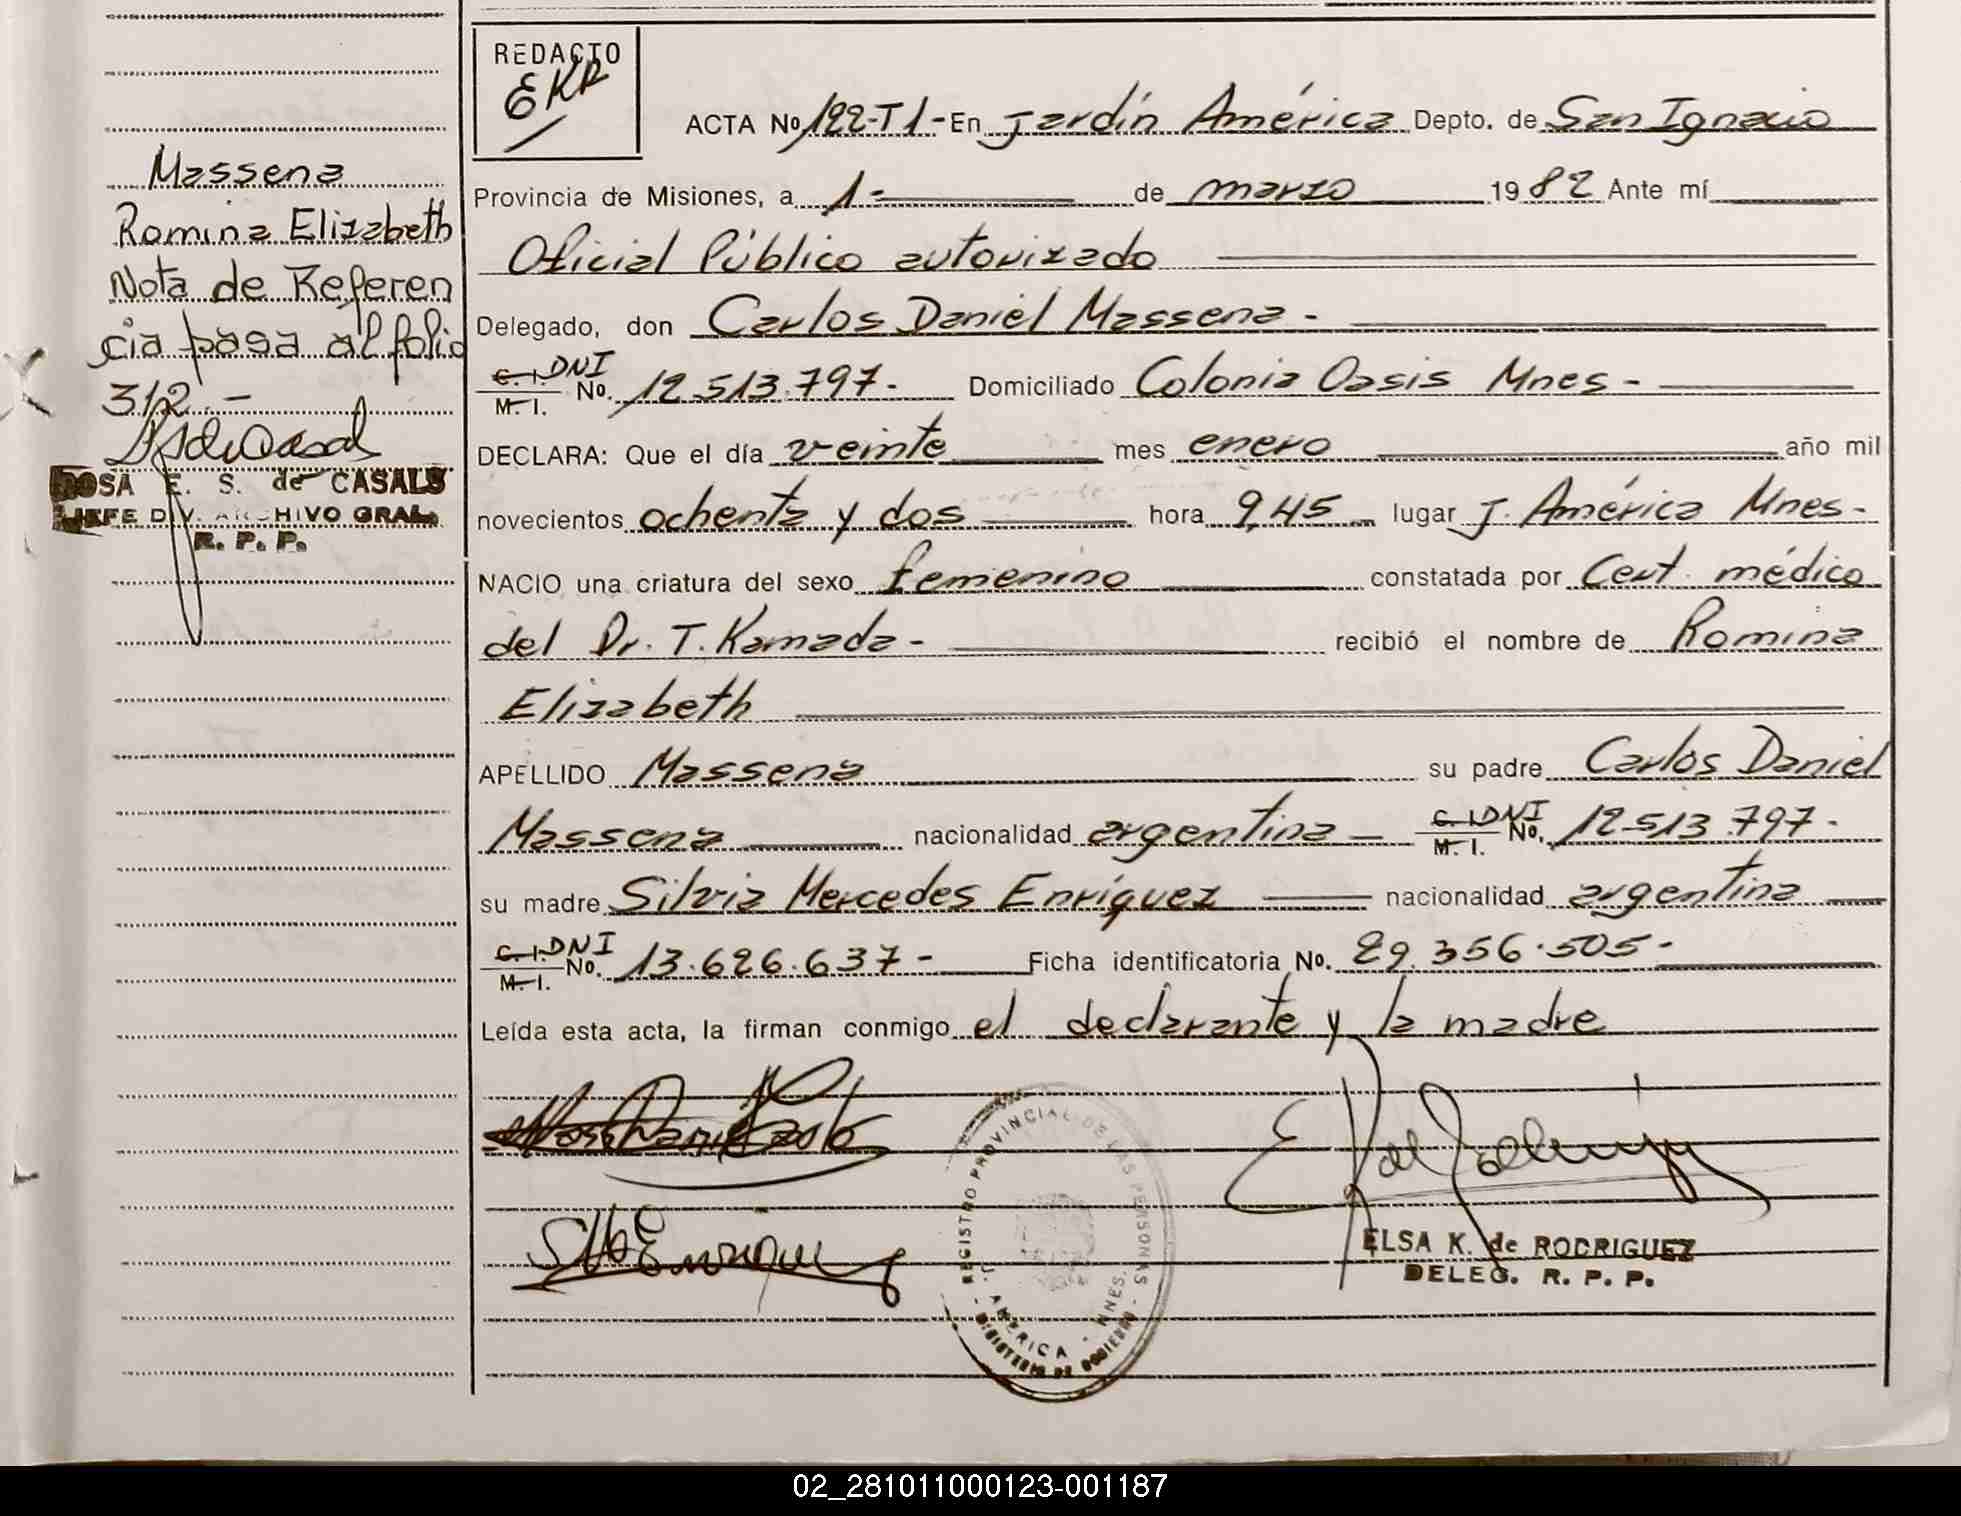 REDACTO
EKR
ACTA No 122-T1- En Jardín América Depto. de San Ignacio
Massena
Romina Elizabeth
Nota de Referen
cia pasa al folio
312.-
ROSA E. S. de CASALS
JEFE DIV. ARCHIVO GRAL.
R. P. P.
Provincia de Misiones, a 1- de marzo 1982 Ante mí
Oficial Público autorizado
Delegado, don Carlos Daniel Massena-
C. I. DNI
M. I. No. 12.513.797- Domiciliado Colonia Oasis Mnes-
DECLARA: Que el día veinte mes enero año mil
novecientos ochenta y dos hora 9,45 lugar J. América Mnes-
NACIO una criatura del sexo femenino constatada por Cert. médico
del Dr. T. Kamada- recibió el nombre de Romina
Elizabeth
APELLIDO Massena su padre Carlos Daniel
Massena nacionalidad argentina C. I. DNI M. I. No. 12.513.797-
su madre Silvia Mercedes Enríquez nacionalidad argentina
C. I. DNI
M. I. No. 13.626.637- Ficha identificatoria No. 29.356.505-
Leída esta acta, la firman conmigo el declarante y la madre
REGISTRO PROVINCIAL DE LAS PERSONAS
J. AMERICA - MNES.
MINISTERIO DE GOBIERNO
ELSA K. de RODRIGUEZ
DELEG. R. P. P.
02_281011000123-001187